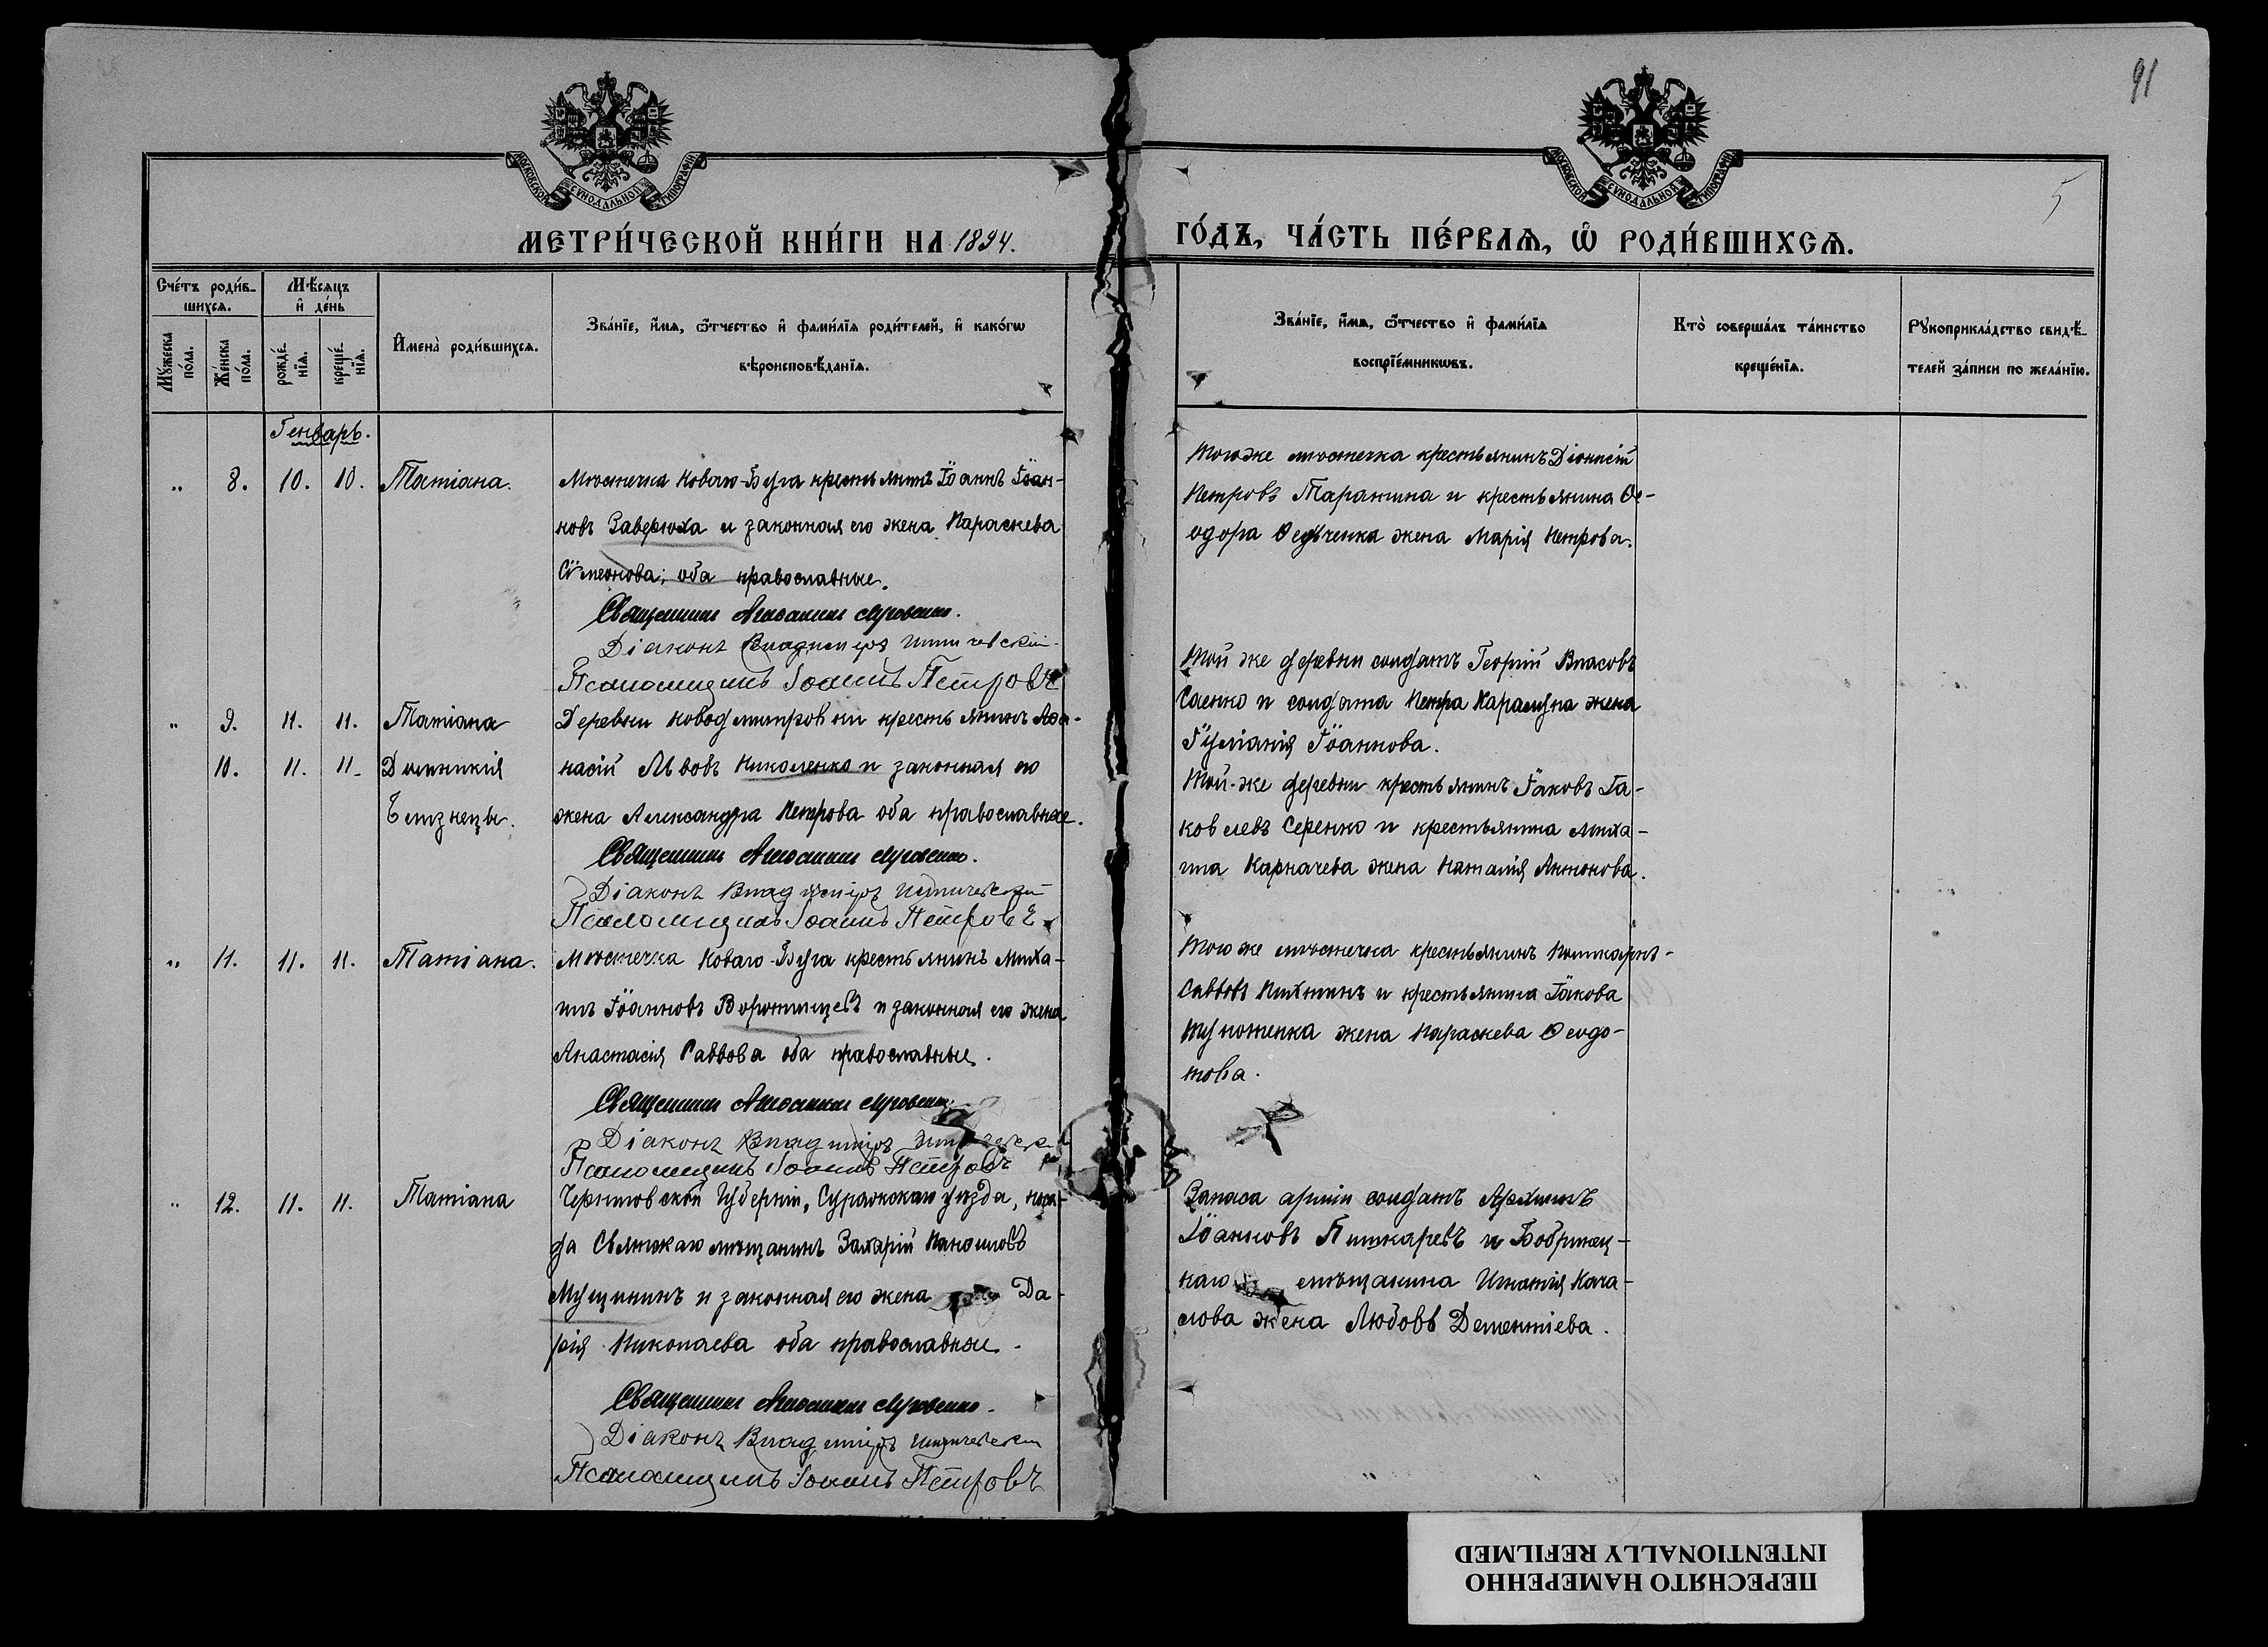 91
5
МОСКОВСКОЙ СѴНОДАЛЬНОЙ ТИПОГРАФІИ
МОСКОВСКОЙ СѴНОДАЛЬНОЙ ТИПОГРАФІИ
МЕТРИ́ЧЕСКОЙ КНИ́ГИ НА 1894.
ГО́ДЪ, ЧА́СТЬ ПЕ́РВАѦ, Ѽ РОДИ́ВШИХСѦ.
Сче́тъ роди́в-
шихсѧ.
Мѣ́сѧцъ
и҆ де́нь
Мꙋ́жеска по́ла.
Же́нска по́ла.
рожде́-
нїѧ.
креще́-
нїѧ.
И҆мена̀ роди́вшихсѧ.
Зва́нїе, и҆́мѧ, ѻ҆́тчество и҆ фами́лїѧ роди́телей, и҆ како́гѡ
вѣроисповѣ́данїѧ.
Зва́нїе, и҆́мѧ, ѻ҆́тчество и҆ фами́лїѧ
воспрїе́мникѡвъ.
Кто̀ соверша́лъ та́инство
креще́нїѧ.
Рꙋкоприкла́дство свидѣ́-
телей за́писи по жела́нїю.
Генварь.
„ 8. 10. 10. Татіана.
Мѣстечка Новаго-Буга крестьянинъ Іоаннъ Іоан-
новъ Заверюха и законная его жена Параскева
Сѵмеонова; оба православные.
Священникъ
Діаконъ Владимиръ
Псаломщикъ Іоаннъ Петровъ
Тогоже мѣстечка крестьянинъ Діонисій
Петровъ Таранина и крестьянина Ѳе-
одора Ѳедченка жена Марія Петрова.
„ 9. 11. 11. Татіана
10. 11. 11. Домникія
близнецы.
Деревни Новодмитровки крестьянинъ Аѳа-
насій Львовъ Николенко и законная его
жена Александра Петрова оба православные.
Священникъ
Діаконъ Владиміръ
Псаломщикъ Іоаннъ Петровъ
Той же деревни солдатъ Георгій Власовъ
Саенко и солдата Петра Харалупа жена
Іуліанія Іоаннова.
Той-же деревни крестьянинъ Іаковъ Іа-
ковлевъ Серенко и крестьянина Миха-
ила Карначева жена Наталія Антонова.
„ 11. 11. 11. Татіана.
Мѣстечка Новаго-Буга крестьянинъ Миха-
илъ Іоанновъ Воротынцевъ и законная его жена
Анастасія Саввова оба православные.
Священникъ
Діаконъ Владиміръ
Псаломщикъ Іоаннъ Петровъ
Того же мѣстечка крестьянинъ Поликарпъ
Саввовъ Пихтинъ и крестьянина Іакова
жена Параскева Ѳеодо-
това.
„ 12. 11. 11. Татіана
Черниговской Губерніи, Суражскаго уѣзда, поса-
да Святскаго мѣщанинъ Захарій Панфиловъ
Мущининъ и законная его жена Да-
рія Николаева оба православные.
Священникъ
Діаконъ Владиміръ
Псаломщикъ Іоаннъ Петровъ
Запаса арміи солдатъ Архипъ
Іоанновъ Пушкаревъ и Бобринец-
каго мѣщанина Игнатія Кача-
лова жена Любовь Дементіева.
ПЕРЕСНЯТО НАМЕРЕННО
INTENTIONALLY REFILMED